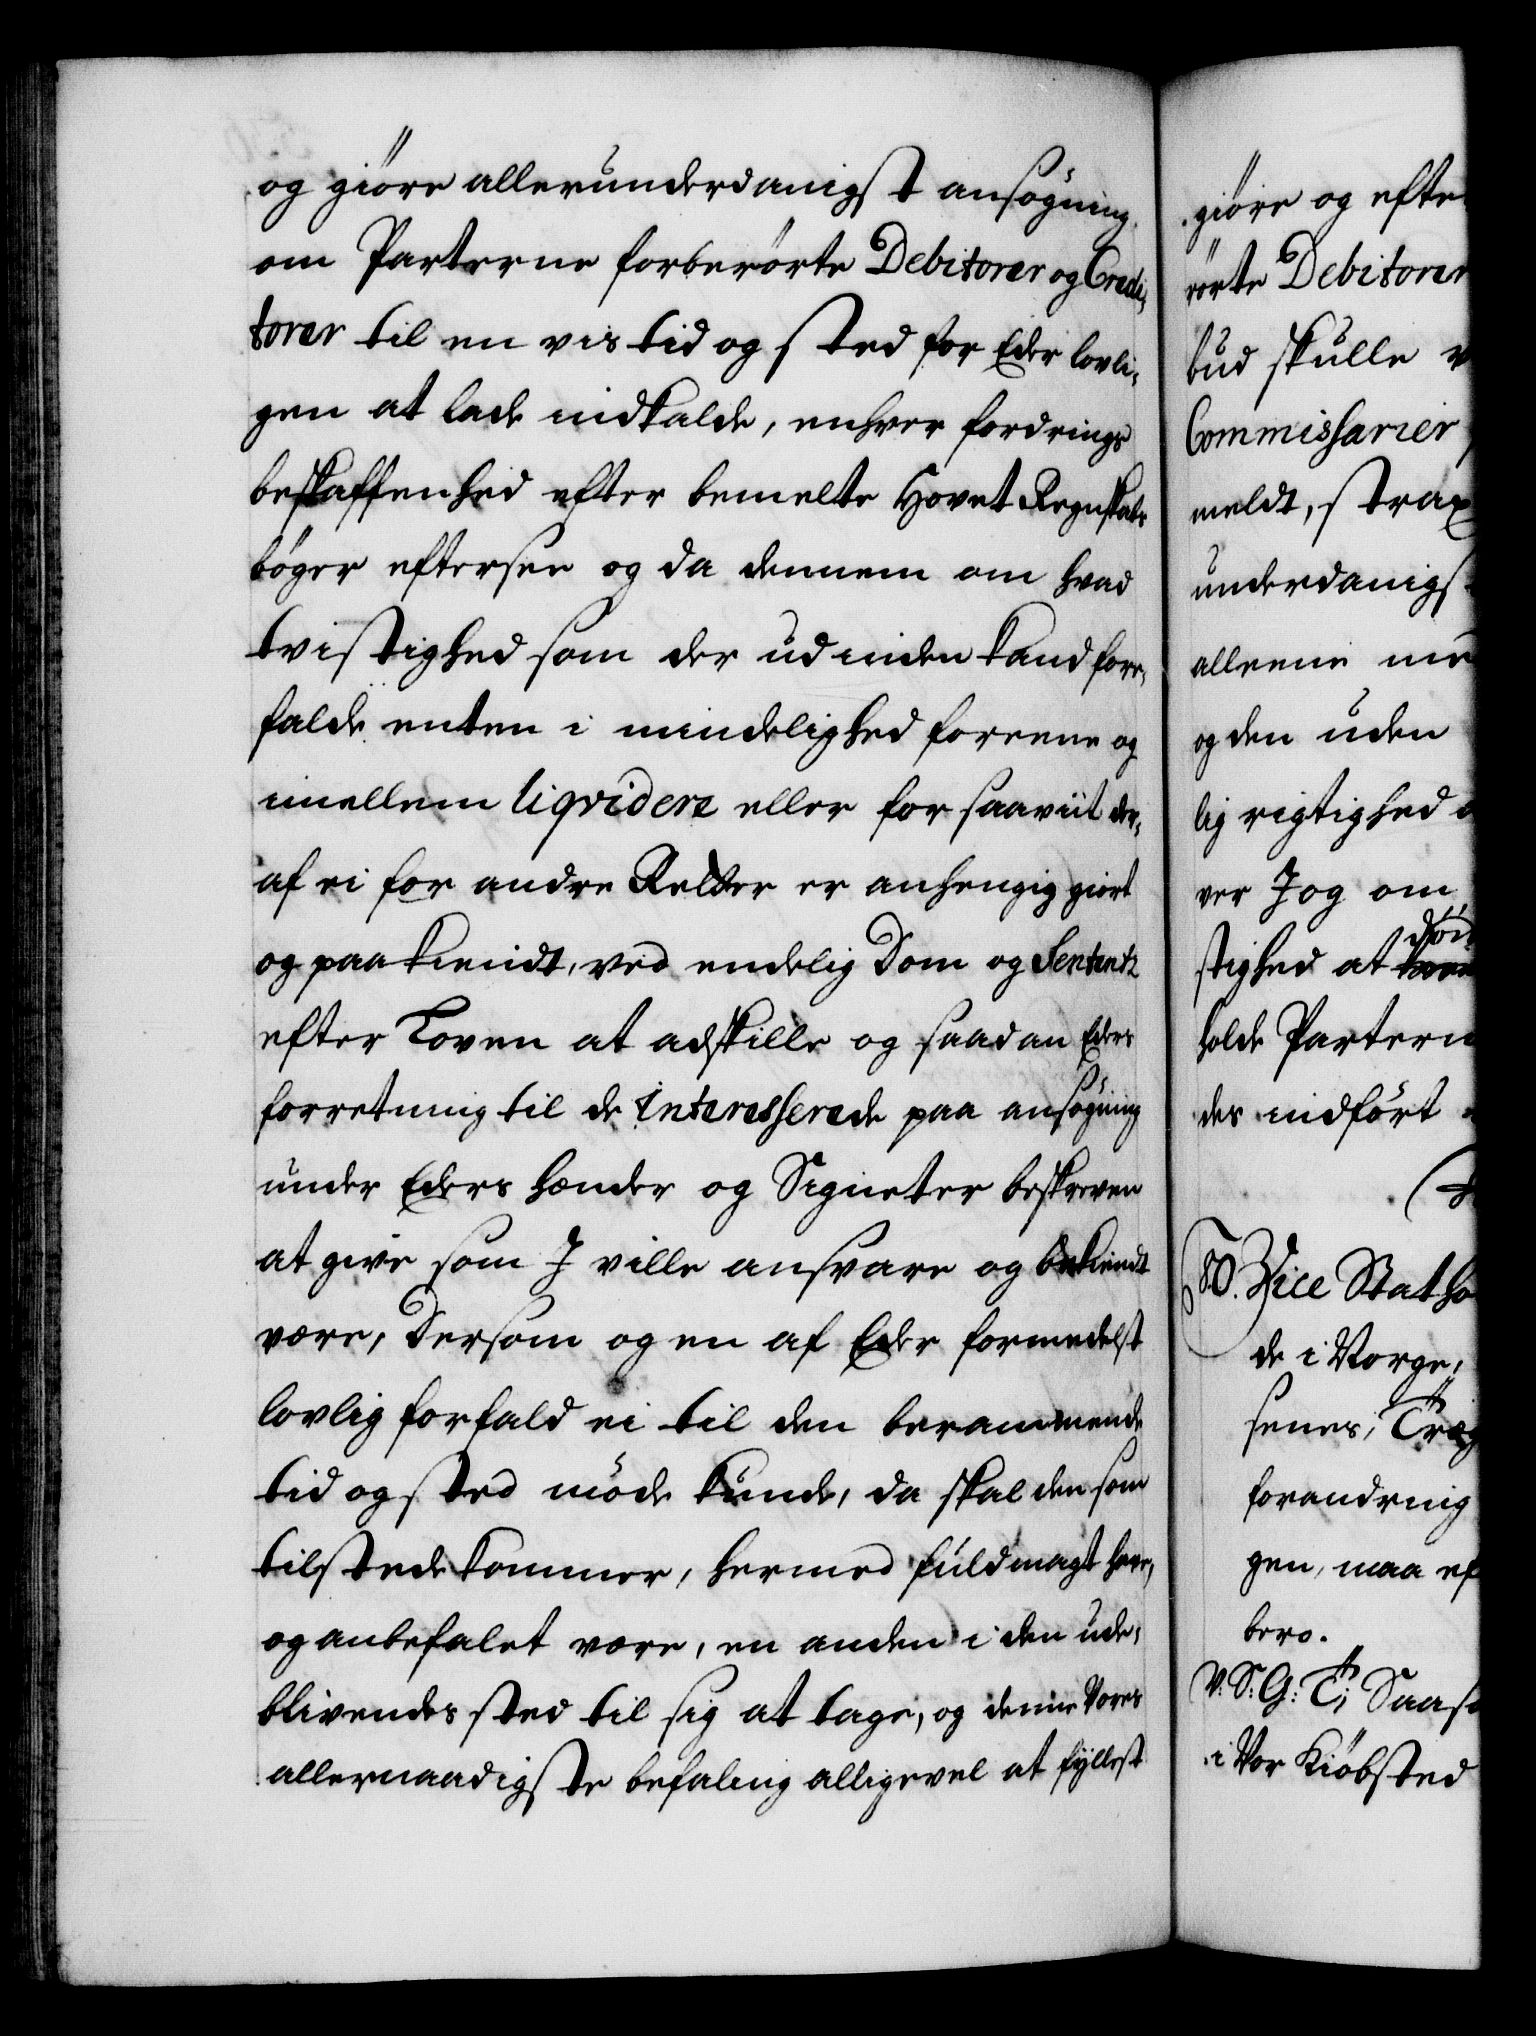 og giöre allerunderdanigst ansøgning
om Parterne forberørte Debitorer og Credi,
torer til en vis tid og sted for Eder lovli,
gen at lade indkalde, enhver fordrings
beskaffenhed efter bemelte Hovet Regnskabs
bøger eftersee og da dennem om hvad
tvistighed som der udinden kand fore,
falde enten i mindelighed foreene og
imellem liqvidere eller for saaviit der,
af ei for andre Retter er anhengig giort
og paakiendt, ved endelig Dom og Sententz
efter Loven at adskille og saadan Eders
forretning til de Interesserede paa ansøgning
under Eders hænder og Signeter beskreven
at give som J ville ansvare og bekiendt
være, Dersom og en af Eder formedelst
lovlig forfald ei til den berammende
tid og sted møde kunde, da skal den som
tilstede kommer, hermed fuldmagt have,
og anbefalet være, en anden i den ude,
blivendes sted til sig at tage, og denne Vores
allernaadigste befaling alligevel at fyllest
giöre og efte
rörte Debitorer
bud skulle
Commissarier
meldt, strax
underdanigs
alleene
og den uden
lig rigtighed
ver J og om
stighed at
holde Partern
des indført
Vice Statho
de i Norge,
senes, Trög
forandring
gen, maa ef
bero.
V: S: G: T; Saaso
i Vor Kiöbsted